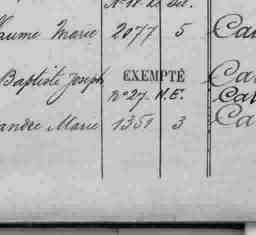 aume Marie 2077 5 Ca
Baptiste Joseph EXEMPTÉ Ca
N° 27. N.E. Ca
andre Marie 1351 3 Ca